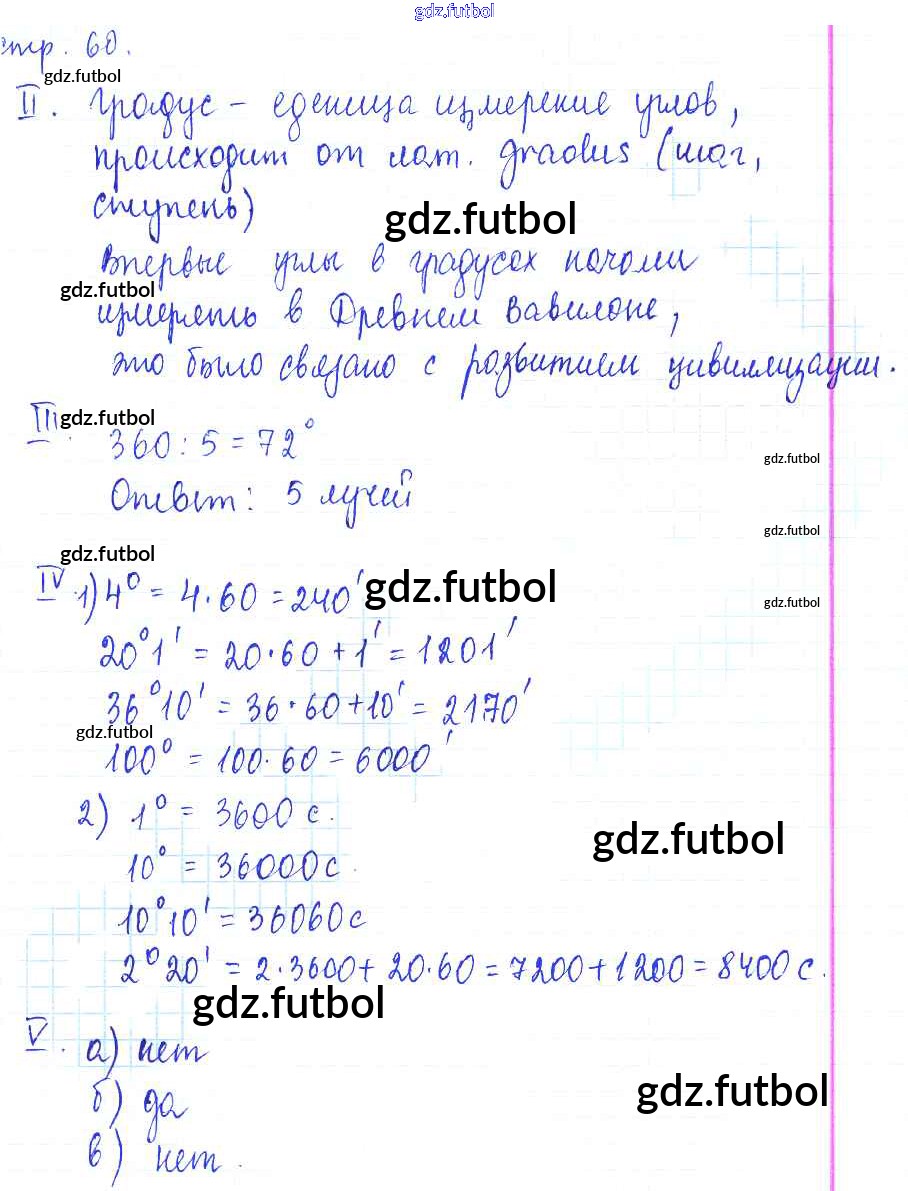 gdz.futbol
стр. 60.
gdz.futbol
II. Градус – еденица измерение углов,
происходит от лат. gradus (шаг,
ступень)
gdz.futbol
Впервые углы в градусах начали
gdz.futbol
измерять в Древнем Вавилоне,
это было связано с развитием цивиллизации.
III. gdz.futbol
360 : 5 = 72°
gdz.futbol
Ответ: 5 лучей
gdz.futbol
gdz.futbol
IV. 1) 4° = 4·60 = 240′
gdz.futbol
gdz.futbol
20°1′ = 20·60 + 1′ = 1201′
36°10′ = 36·60+10′ = 2170′
gdz.futbol
100° = 100·60 = 6000′
2) 1° = 3600 с.
gdz.futbol
10° = 36000с.
10°10′ = 36060с
2°20′ = 2·3600+20·60 = 7200+1200 = 8400 с.
gdz.futbol
V. а) нет
gdz.futbol
б) да
в) нет.